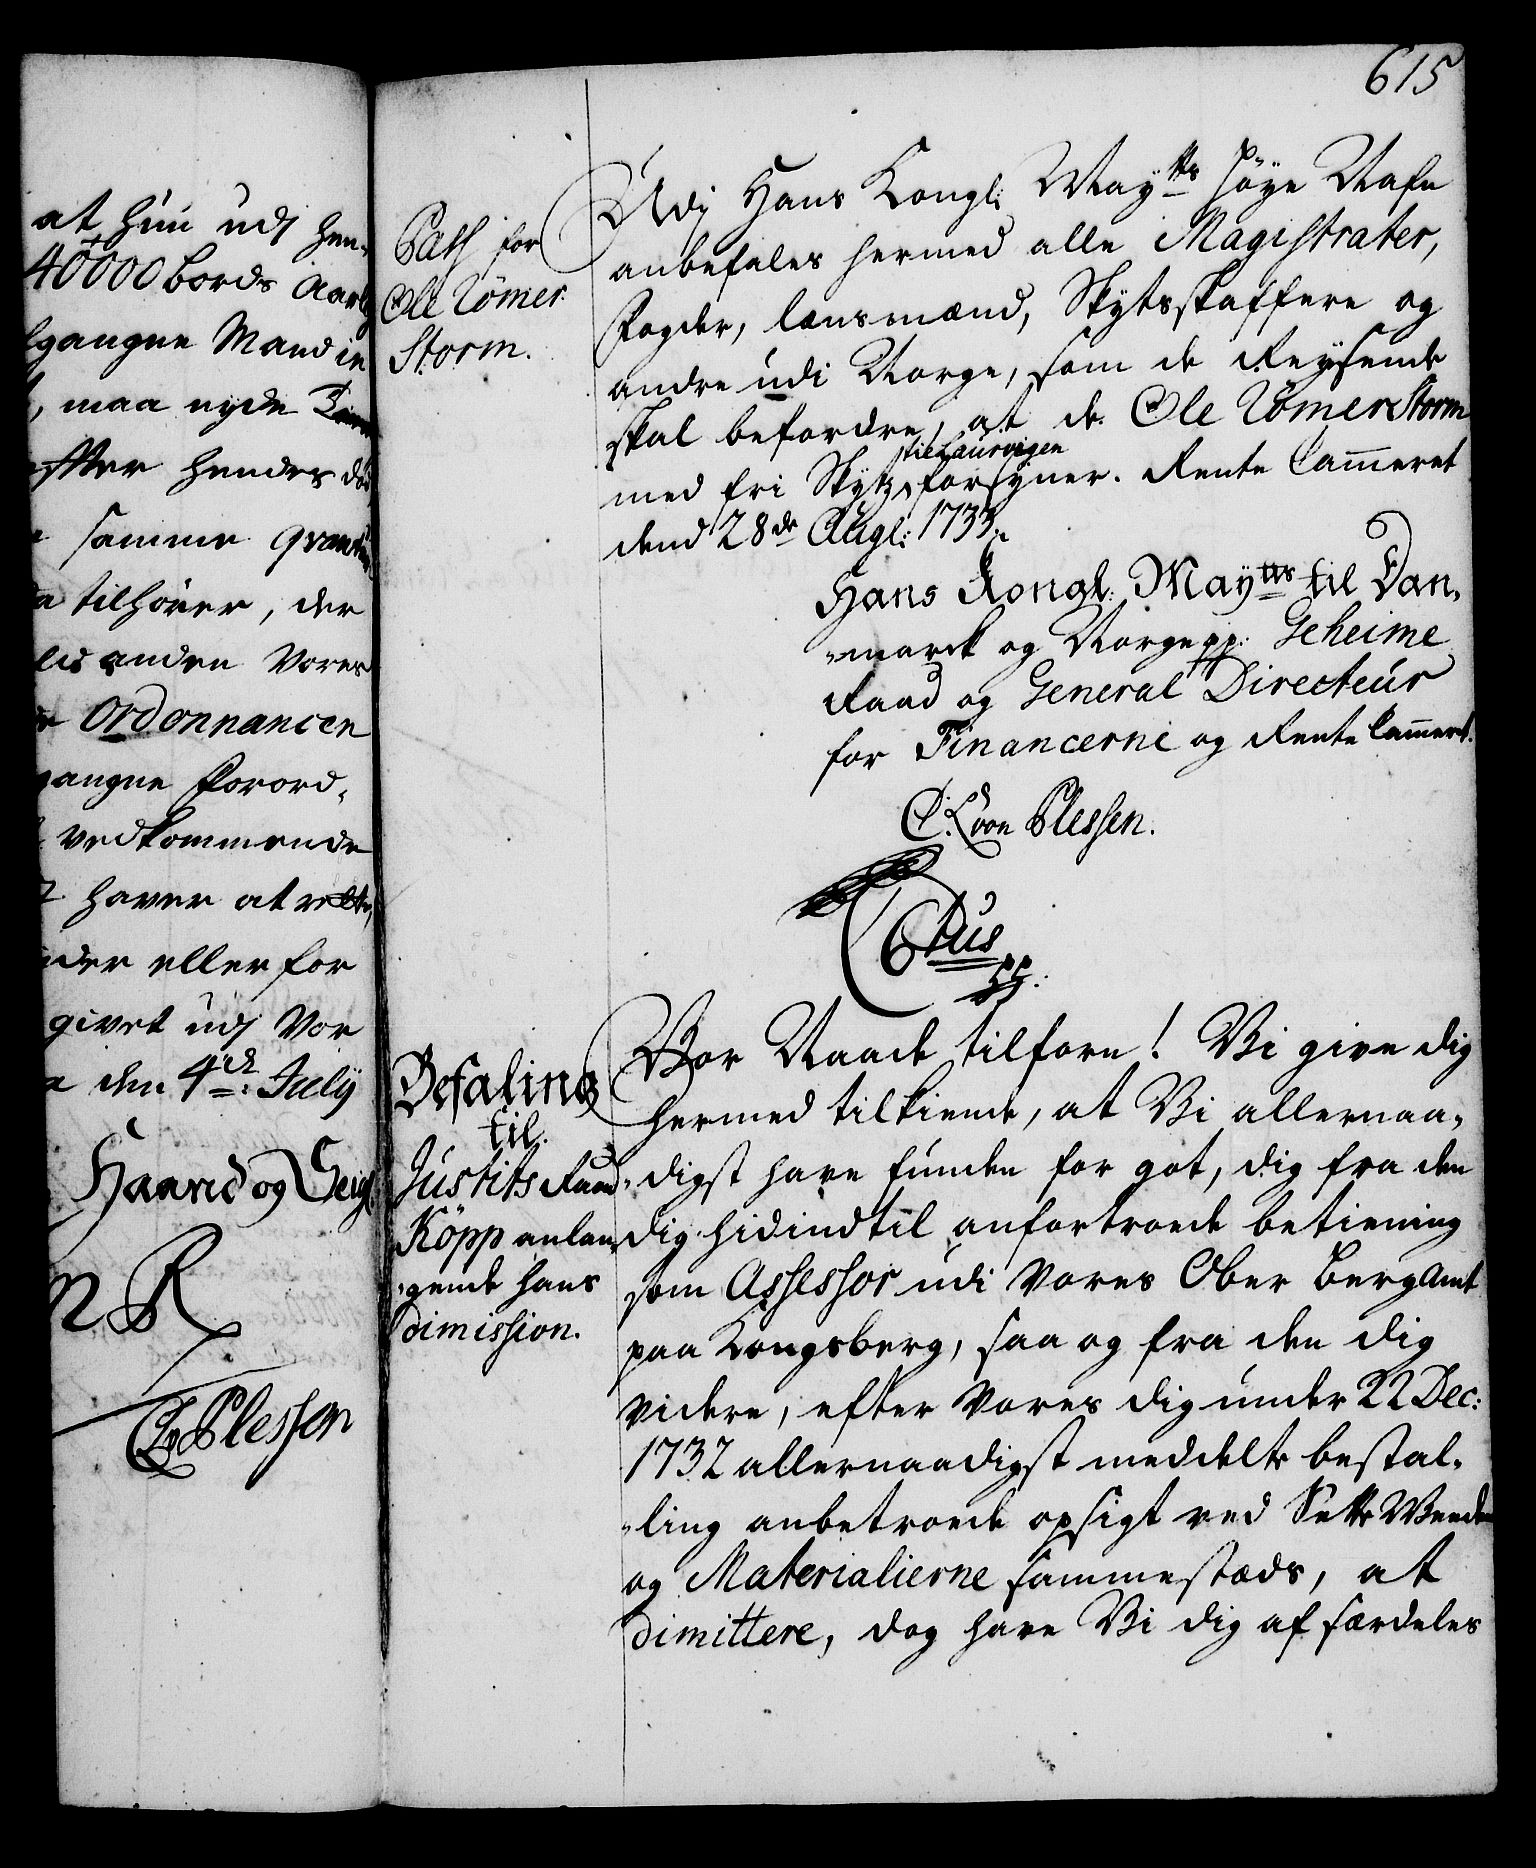 615
at hun udj hen-
40000 bords Aarlig
gangne Mand in
, maa nyde
efter hendes død
samme qvantum
tilhører, der
anden Vores
Ordonnancen
gangne Forord-
vedkommende
haver at rette,
eller for
givet udj Vor
den 4de July
Haand og Seigl
R
Plessen
Pass for
Ole Römer
Storm.
Udj Hans Kongl: Mayts høye Nafn
anbefales hermed alle Magistrater,
Fogder, lænsmænd, Skytsskaffere og
andre udi Norge, som de Reysende
skal befordre, at de Ole Römer Storm
til Laurvigen
med fri Skyts forsyner. Rente Cammeret
dend 28de Augl: 1733.
Hans Kongl: Mayts til Dan-
-marck og Norge pp: Geheime
Raad og General Directeur
for Financerne og Rente Cammeret.
C. A. von Plessen.
C 6tus
pp:
Befaling
til
Justits Raad
Köpp anlan-
-gende hans
dimission.
Vor Naade tilforn! Vi give dig
hermed tilkiende, at Vi allernaa-
-digst have funden for got, dig fra den
dig hidindtil anfortroede betiening
som Assessor udi Vores Ober Berg Amt
paa Kongsberg, saa og fra den dig
videre, efter Vores dig under 22 Dec:
1732 allernaadigst meddelte bestal-
-ling anbetroede opsigt ved Sette Veeden
og Materialierne sammestæds, at
dimittere, dog have Vi dig af særdeles